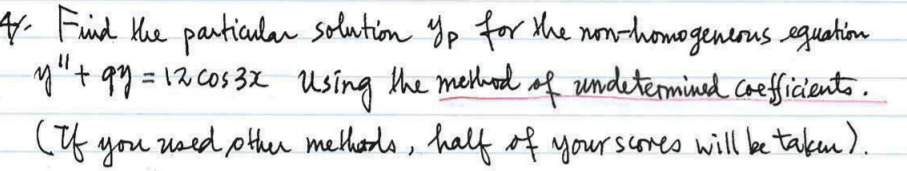 4. Find the particular solution yp for the non-homogeneous equation
y" + 9y = 12 cos 3x Using the method of undetermined coefficients.
(If you used other methods, half of your scores will be taken).